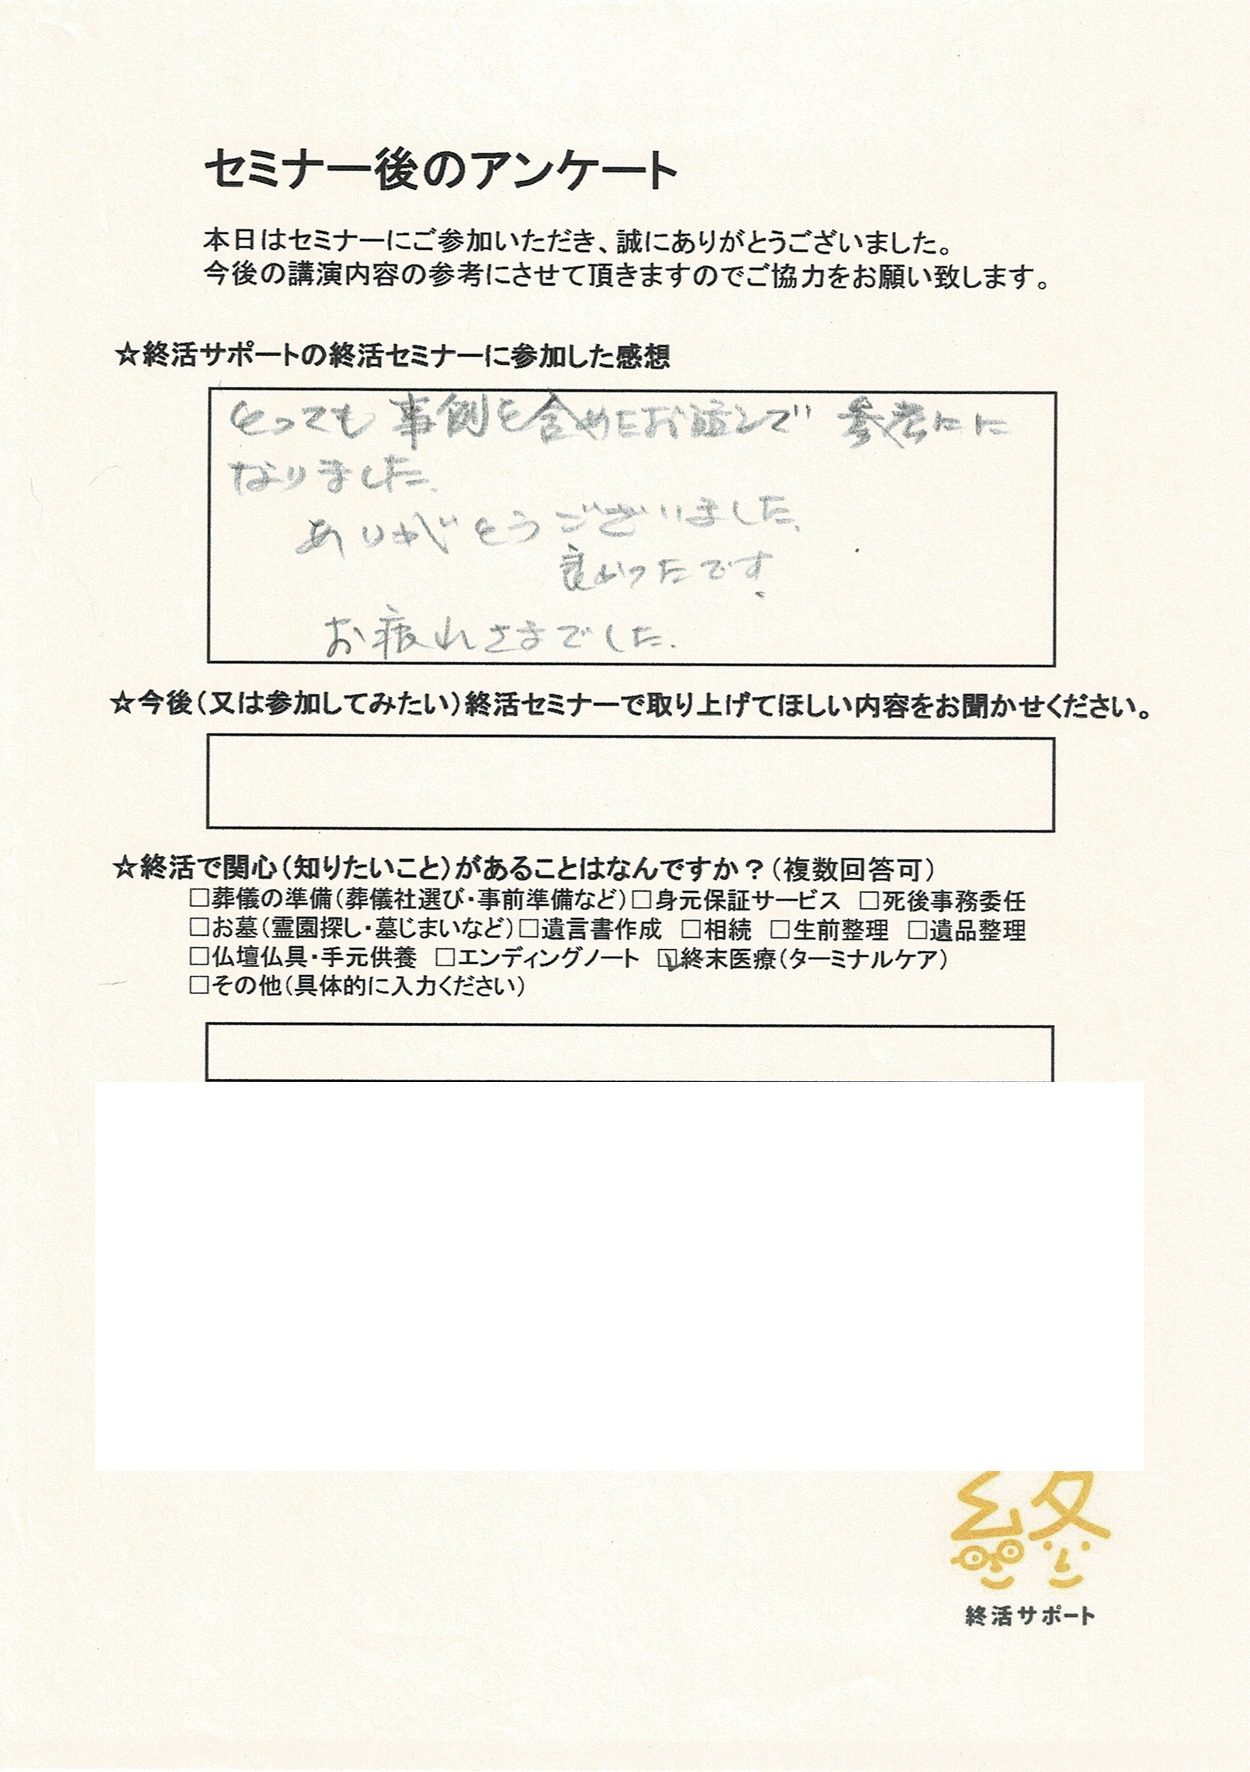 セミナー後のアンケート
本日はセミナーにご参加いただき、誠にありがとうございました。
今後の講演内容の参考にさせて頂きますのでご協力をお願い致します。
☆終活サポートの終活セミナーに参加した感想
とっても事例を含めたお話しで 参考にに
なりました。
ありがとうございました。
良かったです。
お疲れさまでした。
☆今後(又は参加してみたい)終活セミナーで取り上げてほしい内容をお聞かせください。
☆終活で関心(知りたいこと)があることはなんですか?(複数回答可)
□葬儀の準備(葬儀社選び・事前準備など)□身元保証サービス □死後事務委任
□お墓(霊園探し・墓じまいなど)□遺言書作成 □相続 □生前整理 □遺品整理
□仏壇仏具・手元供養 □エンディングノート ☑終末医療(ターミナルケア)
□その他(具体的に入力ください)
終
終活サポート